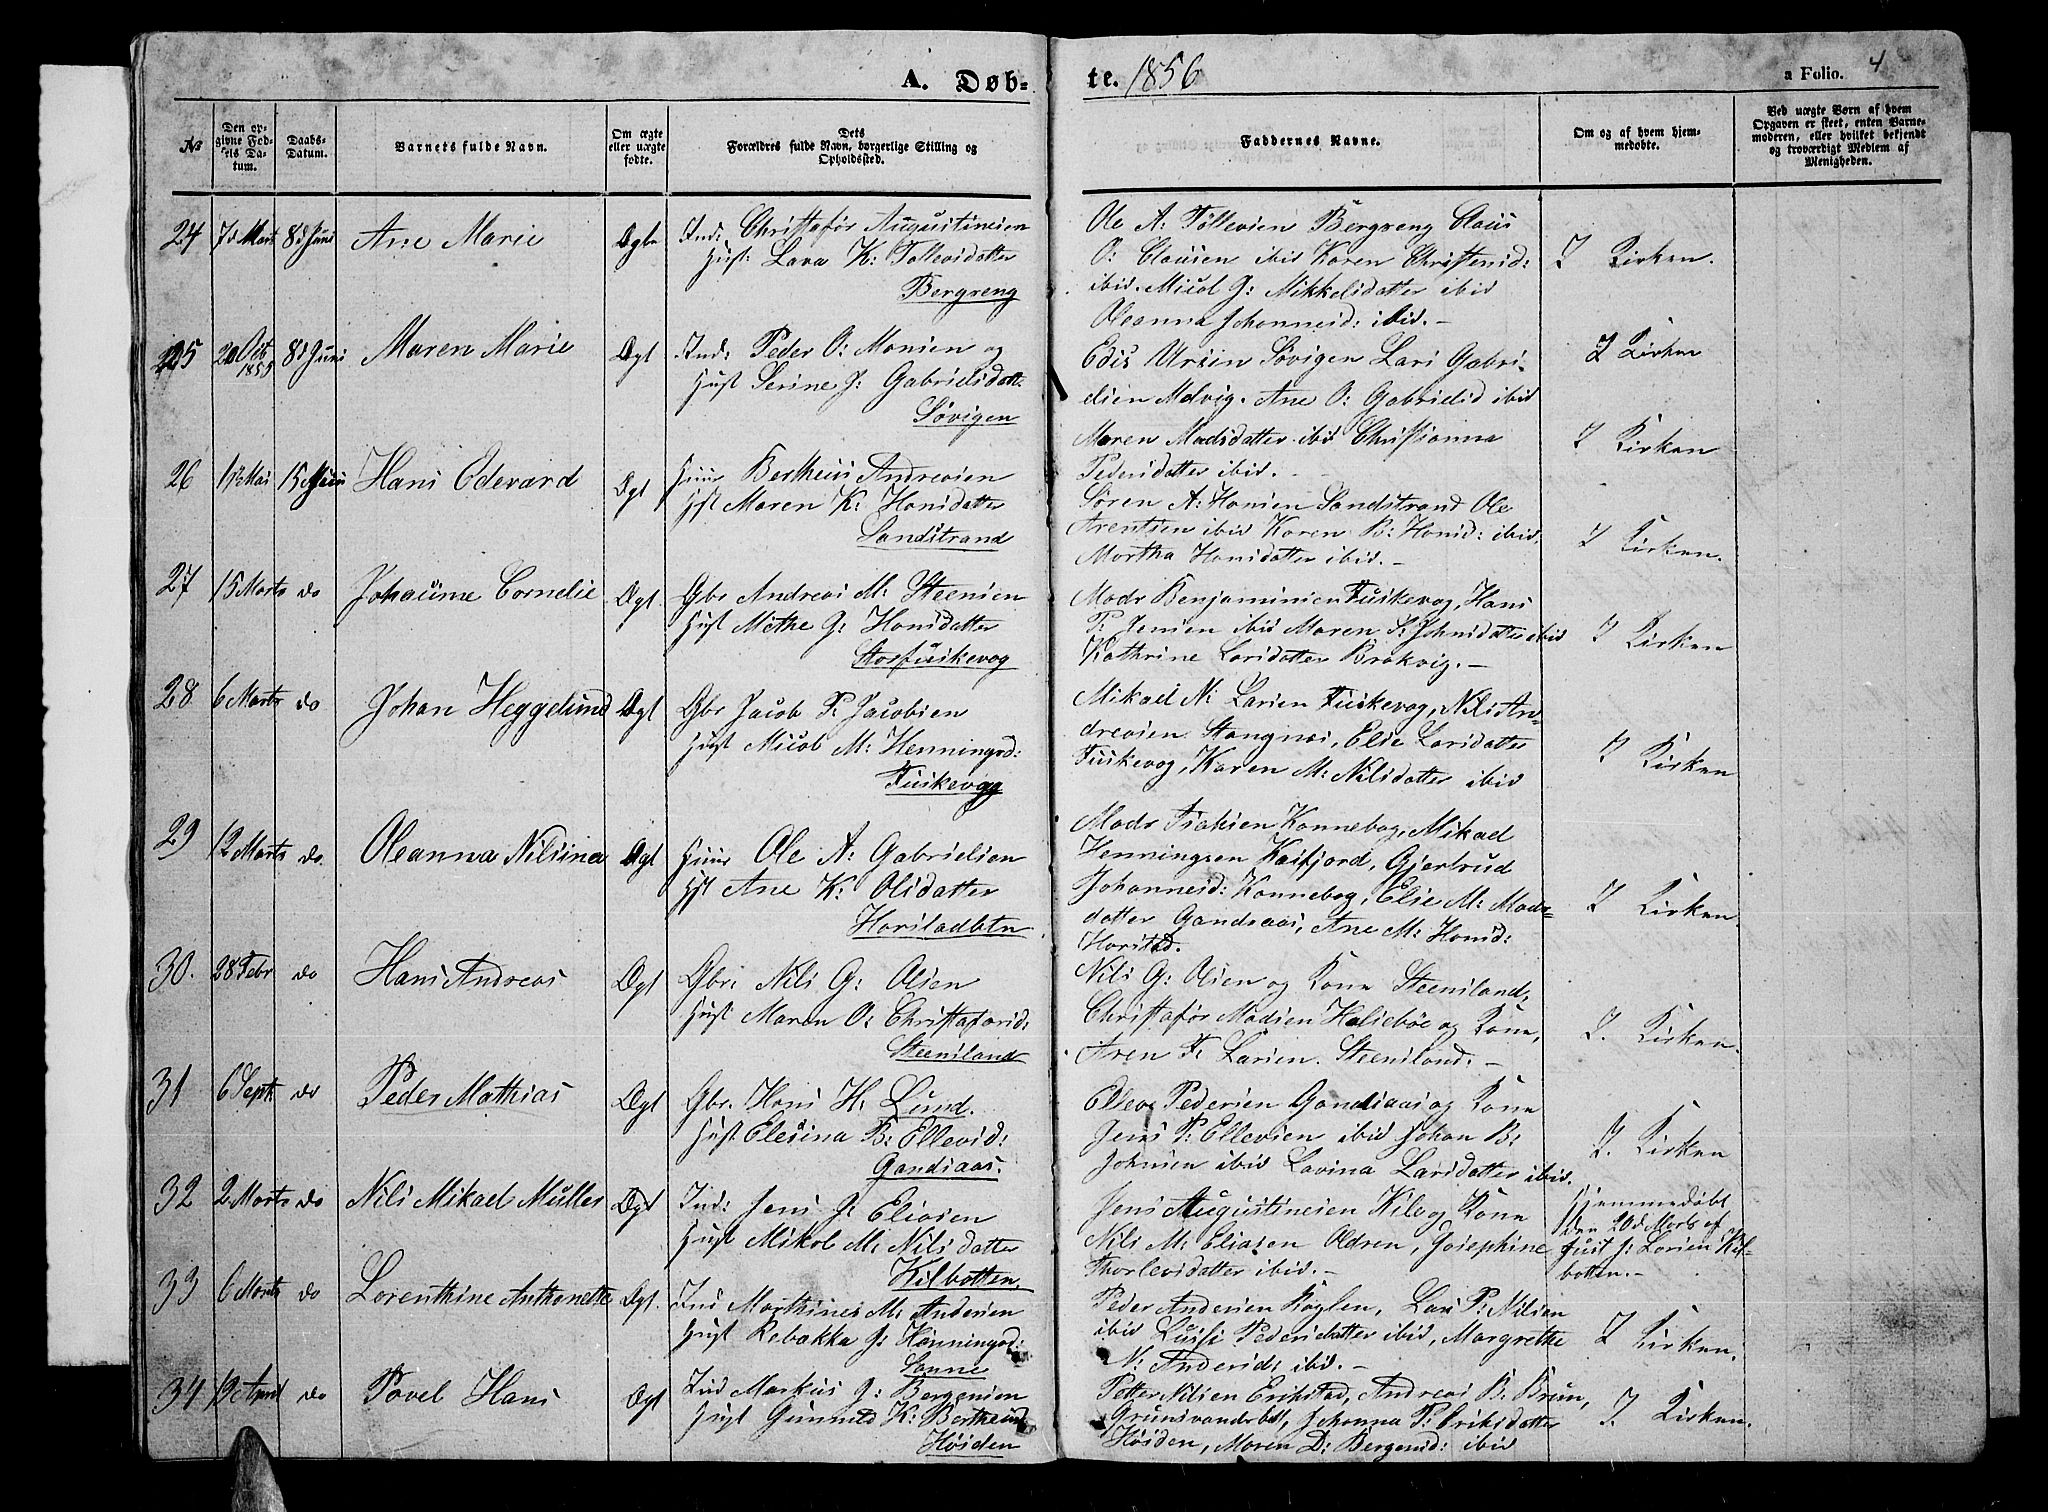 A. Døb- te. 1856 a Folio. 4
No
Den op-
givne Fød-
sels Da-
tum.
Daabs-
Datum.
Barnets fulde Navn.
Om ægte
eller uægte
fødte.
Dets
Forældres fulde Navn, borgerlige Stilling og
Opholdssted.
Faddernes Navne.
Om og af hvem hjem-
medøbte.
Ved uægte Børn af hvem
Opgaven er skeet, enten Barne-
moderen, eller hvilket bekjendt
og troværdigt Medlem af
Menigheden.
24 7d Mars 8d Juni Ane Marie Ægte Ind: Christafør Augustinsen
Hust: Lava K: Tollevsdatter
Bergseng
Ole A: Tøllevsen Bergseng Claus
O: Clausen ibid Karen Christensd:
ibid. Micol J: Mikkelsdatter ibid
Oleanna Johannesd: ibid.-
I Kirken.
25 20 Oct 1855 8d Juni Maren Marie Ægt Ind: Peder O: Monsen og
Hust Serine J: Gabrielsdatt
Søvigen
Edis Ursin Søvigen Lars Gabri-
elsen Melvig. Ane O: Gabrielsd ibid
Maren Madsdatter ibid Christianna
Pedersdatter ibid.-
I Kirken
26 15 Juni Hans Edevard Ægt Huus Bertheus Andreasen
Hst Maren K: Hansdatter
Sandstrand
Søren A: Hansen Sandstrand Ole
Arentsen ibid Karen B: Hansd: ibid,
Martha Hansdatter ibid.-
I Kirken
27 15 Marts do Johanne Cornelie Ægt. Gbr Andreas M: Steensen
Hust Methe G: Hansdatter
Storfuskevog
Mads Benjaminsen Fuskevog, Hans
P: Jensen ibid Maren S: Johnsdatter ibid
Kathrine Larsdatter Brokvig.-
I Kirken.
28 6 Marts do Johan Heggelund Ægt Gbr Jacob P. Jacobsen
Hust Micob M: Henningsd:
Fuskevog
Mikael N: Larsen Fuskevog, Nils An-
dreasen Stangnes, Else Larsdatter
Fuskevog, Karen M: Nilsdatter ibid
I Kirken
29 12 Marts do Oleanna Nilsine Ægt Huus Ole A: Gabrielsen
Hst Ane K: Olsdatter
Harstadbtn
Mads Isaksen Kannebog, Mikael
Henningsen Kasfjord, Gjertrud
Johannesd: Kannebog, Else M: Mads-
datter Gandsaas, Ane M: Hansd:
Harstad.
I Kirken
30. 28 Febr do Hans Andreas Ægt Gbr: Nils G: Olsen
Hust Maren O: Christaforsd:
Steensland
Nils G: Olsen og Kone Steensland,
Christafør Madsen Halsebøe og Kone,
Aren F: Larsen Steensland.-
I Kirken
31 6 Sept do Peder Mathias Ægt Gbr. Hans H: Lund.
Hust Elesina B: Ellevsd:
Gandsaas.
Ellev Pedersen Gandsaas og Kone
Jens P: Ellevsen ibid Johan B:
Johnsen ibid Lavina Larsdatter ibid.
I. Kirken
32 2 Marts do Nils Mikael Muller Ægt Ind: Jens J: Eliasen
Hust Mikol M: Nilsdatter
Kilbotten.
Jens Augustinsen Kile og Kone
Nils M: Eliasen Oldren, Josephine
Thorlevsdatter ibid.-
Hjemmedøbt
den 20d Marts af
Just J: Larsen Kil-
botten.-
33 6 Marts do Lorenthine Anthonette Ægt. Ind Marthines M: Andersen
Hust Rebækka J: Hanningsd:
Sanne
Peder Andersen Røglen, Lars P: Nilsen
ibid Lussi Pedersdatter ibid, Margrethe
N: Andersd: ibid.-
I Kirken.
34 do Povel Hans Ægt Ind Markus J: Bergensen
Hust Gunnild K: Bertheusd
Høiden
Petter Nilsen Erikstad, Andreas B: Brun,
Grunsvanderbd, Johanna P: Eriksdatter
Høiden, Maren D: Bergensd: ibid
I. Kirken.